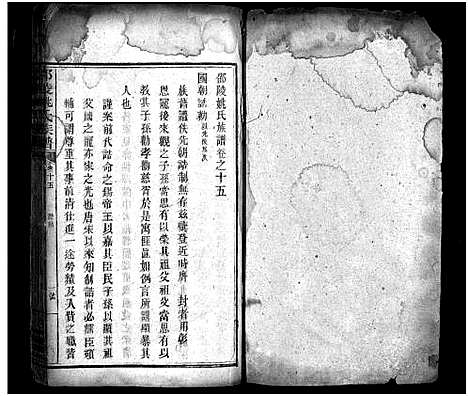 邵陵姚氏族譜卷之十五
國朝誥勅
族舊譜佚先朝誥制無存兹帙登近時膺 封者用彰
恩寵後來觀之子孫當思有以榮其祖父祖父當思有以
教其子孫勸孝勸慈胥於是乎寓匪直如例言所謂顯暴其
人也
謹案前代誥命之錫帝王以嘉其臣民子孫以顯其祖
父國之寵亦家之光也唐宋以來知制誥者必儒臣碩
輔可謂尊重其事前清仕進一途勞績及入貲之職皆
邵陵姚氏族譜
卷十五